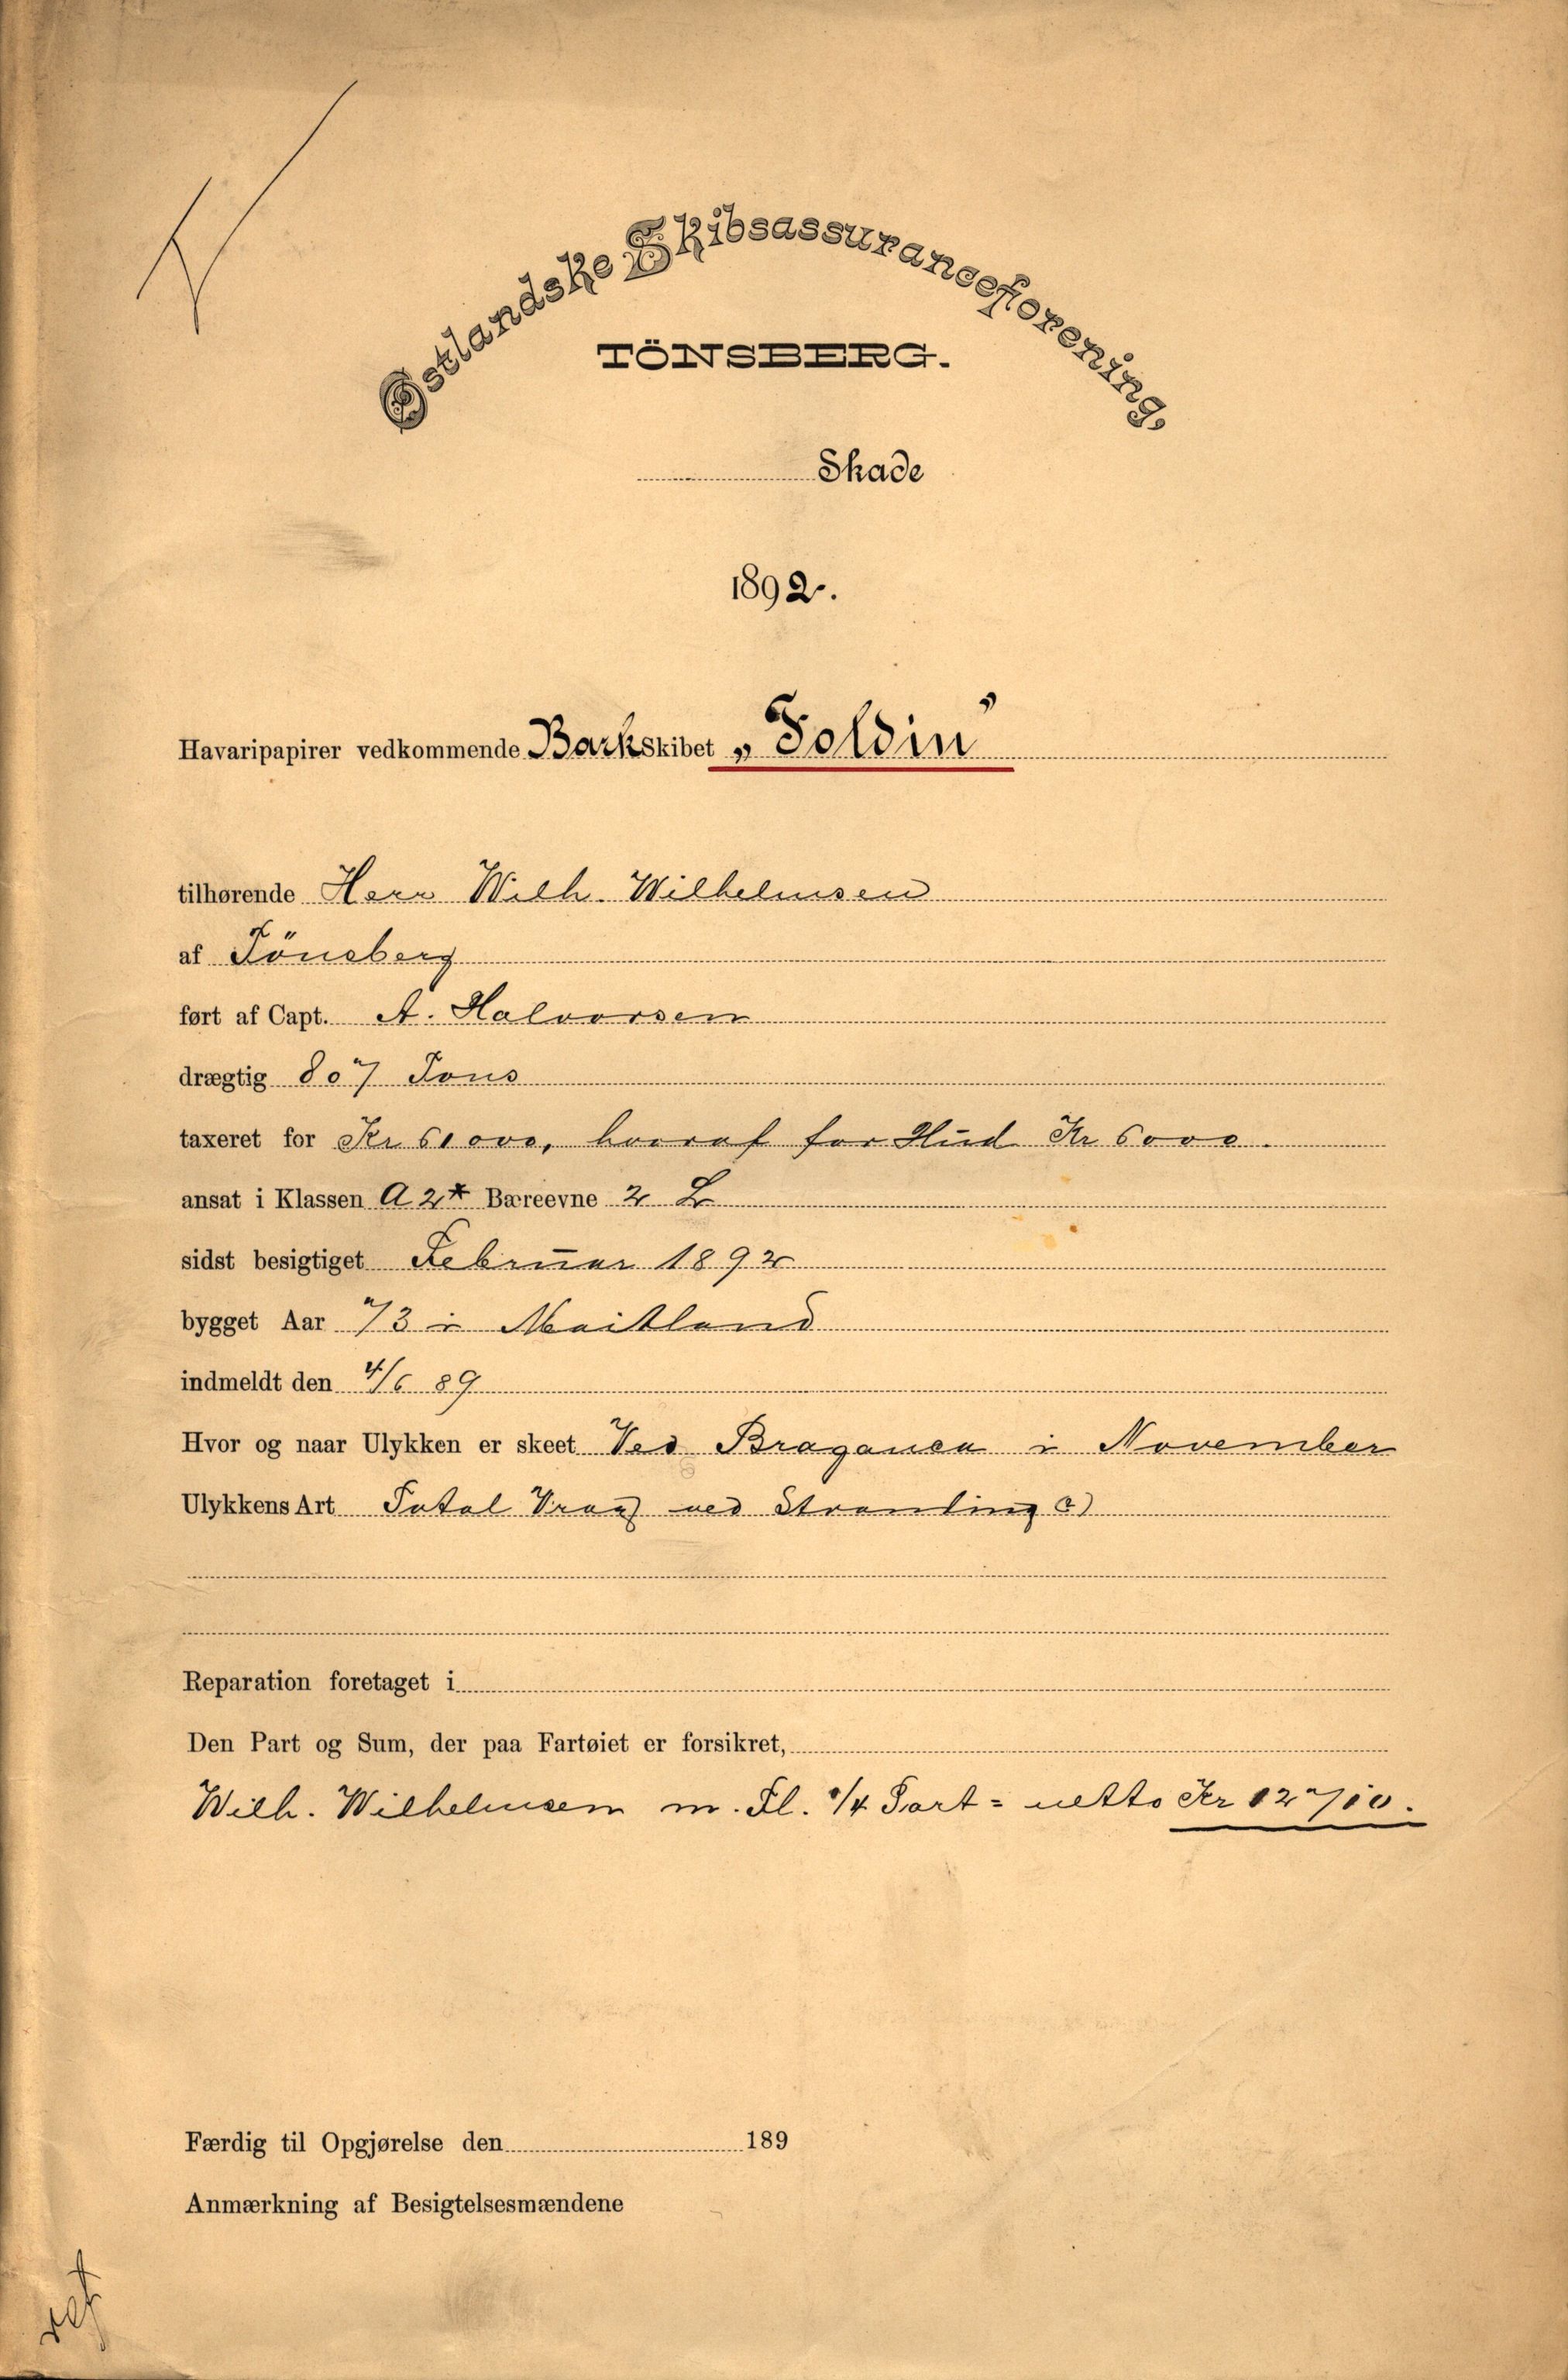 Østlandske Skibsassuranceforening,
TÖNSBERG.
Skade
1892.
Havaripapirer vedkommende Barkskibet „Soldin"
tilhørende Herr Wilh. Wilhelmsen
af Tönsberg
ført af Capt. A. Halvorsen
drægtig 807 Tons
taxeret for Kr 61000, hvoraf for Hud Kr 6000.
ansat i Klassen A 2* Bæreevne 2 L
sidst besigtiget Februar 1892
bygget Aar 73 i Maitland
indmeldt den 4/6 89
Hvor og naar Ulykken er skeet Ved Braganca i November
Ulykkens Art Total Vrag ved Stranding (?)
Reparation foretaget i
Den Part og Sum, der paa Fartøiet er forsikret,
Wilh. Wilhelmsen m. Fl. 1/4 Part = netto Kr 12710.
Færdig til Opgjørelse den 189
Anmærkning af Besigtelsesmændene